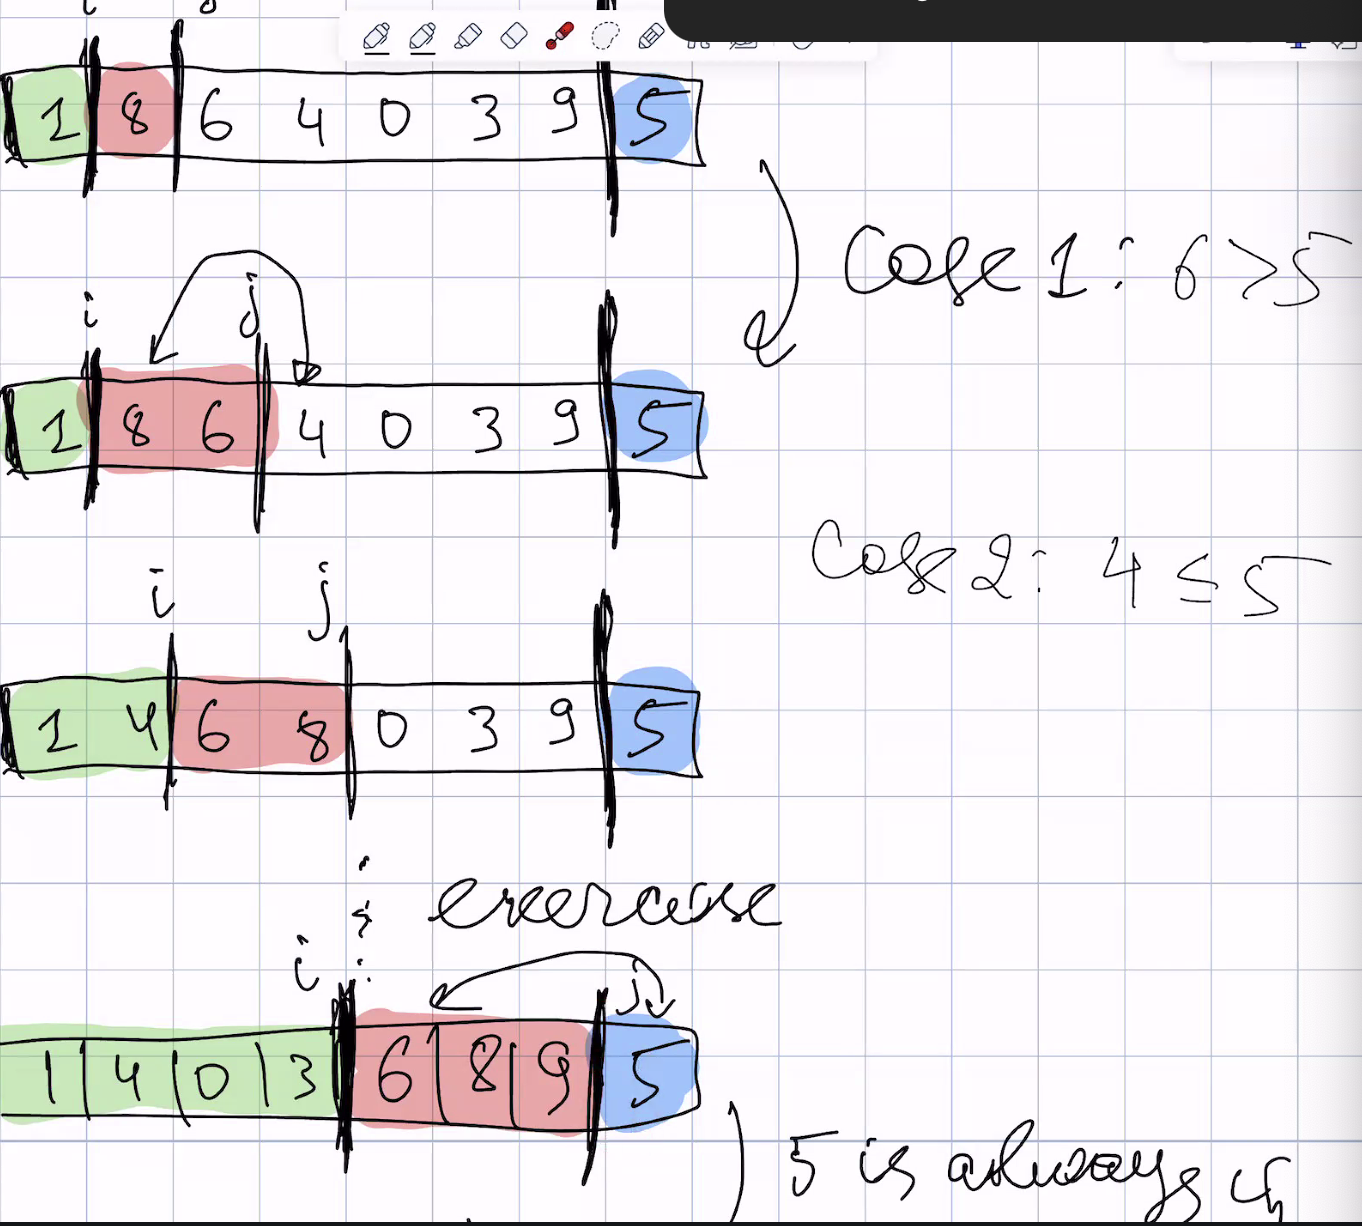 1 8 6 4 0 3 9 5
Case 1: 6 > 5
i j
1 8 6 4 0 3 9 5
Case 2: 4 ≤ 5
i j
1 4 6 8 0 3 9 5
exercise
i j
1 4 0 3 6 8 9 5
5 is always